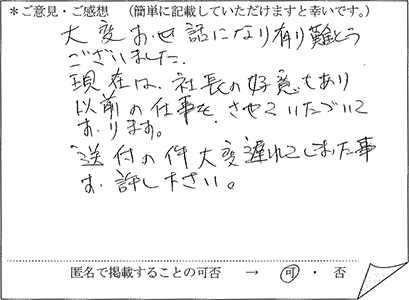 *ご意見・ご感想 (簡単に記載していただけますと幸いです。)
大変お世話になり有り難とう
ございました。
現在は、社長の好意もあり
以前の仕事を、させていたづいて
おります。
送付の件大変遅れてしまった事
お許し下さい。
匿名で掲載することの可否 → 可 ・ 否